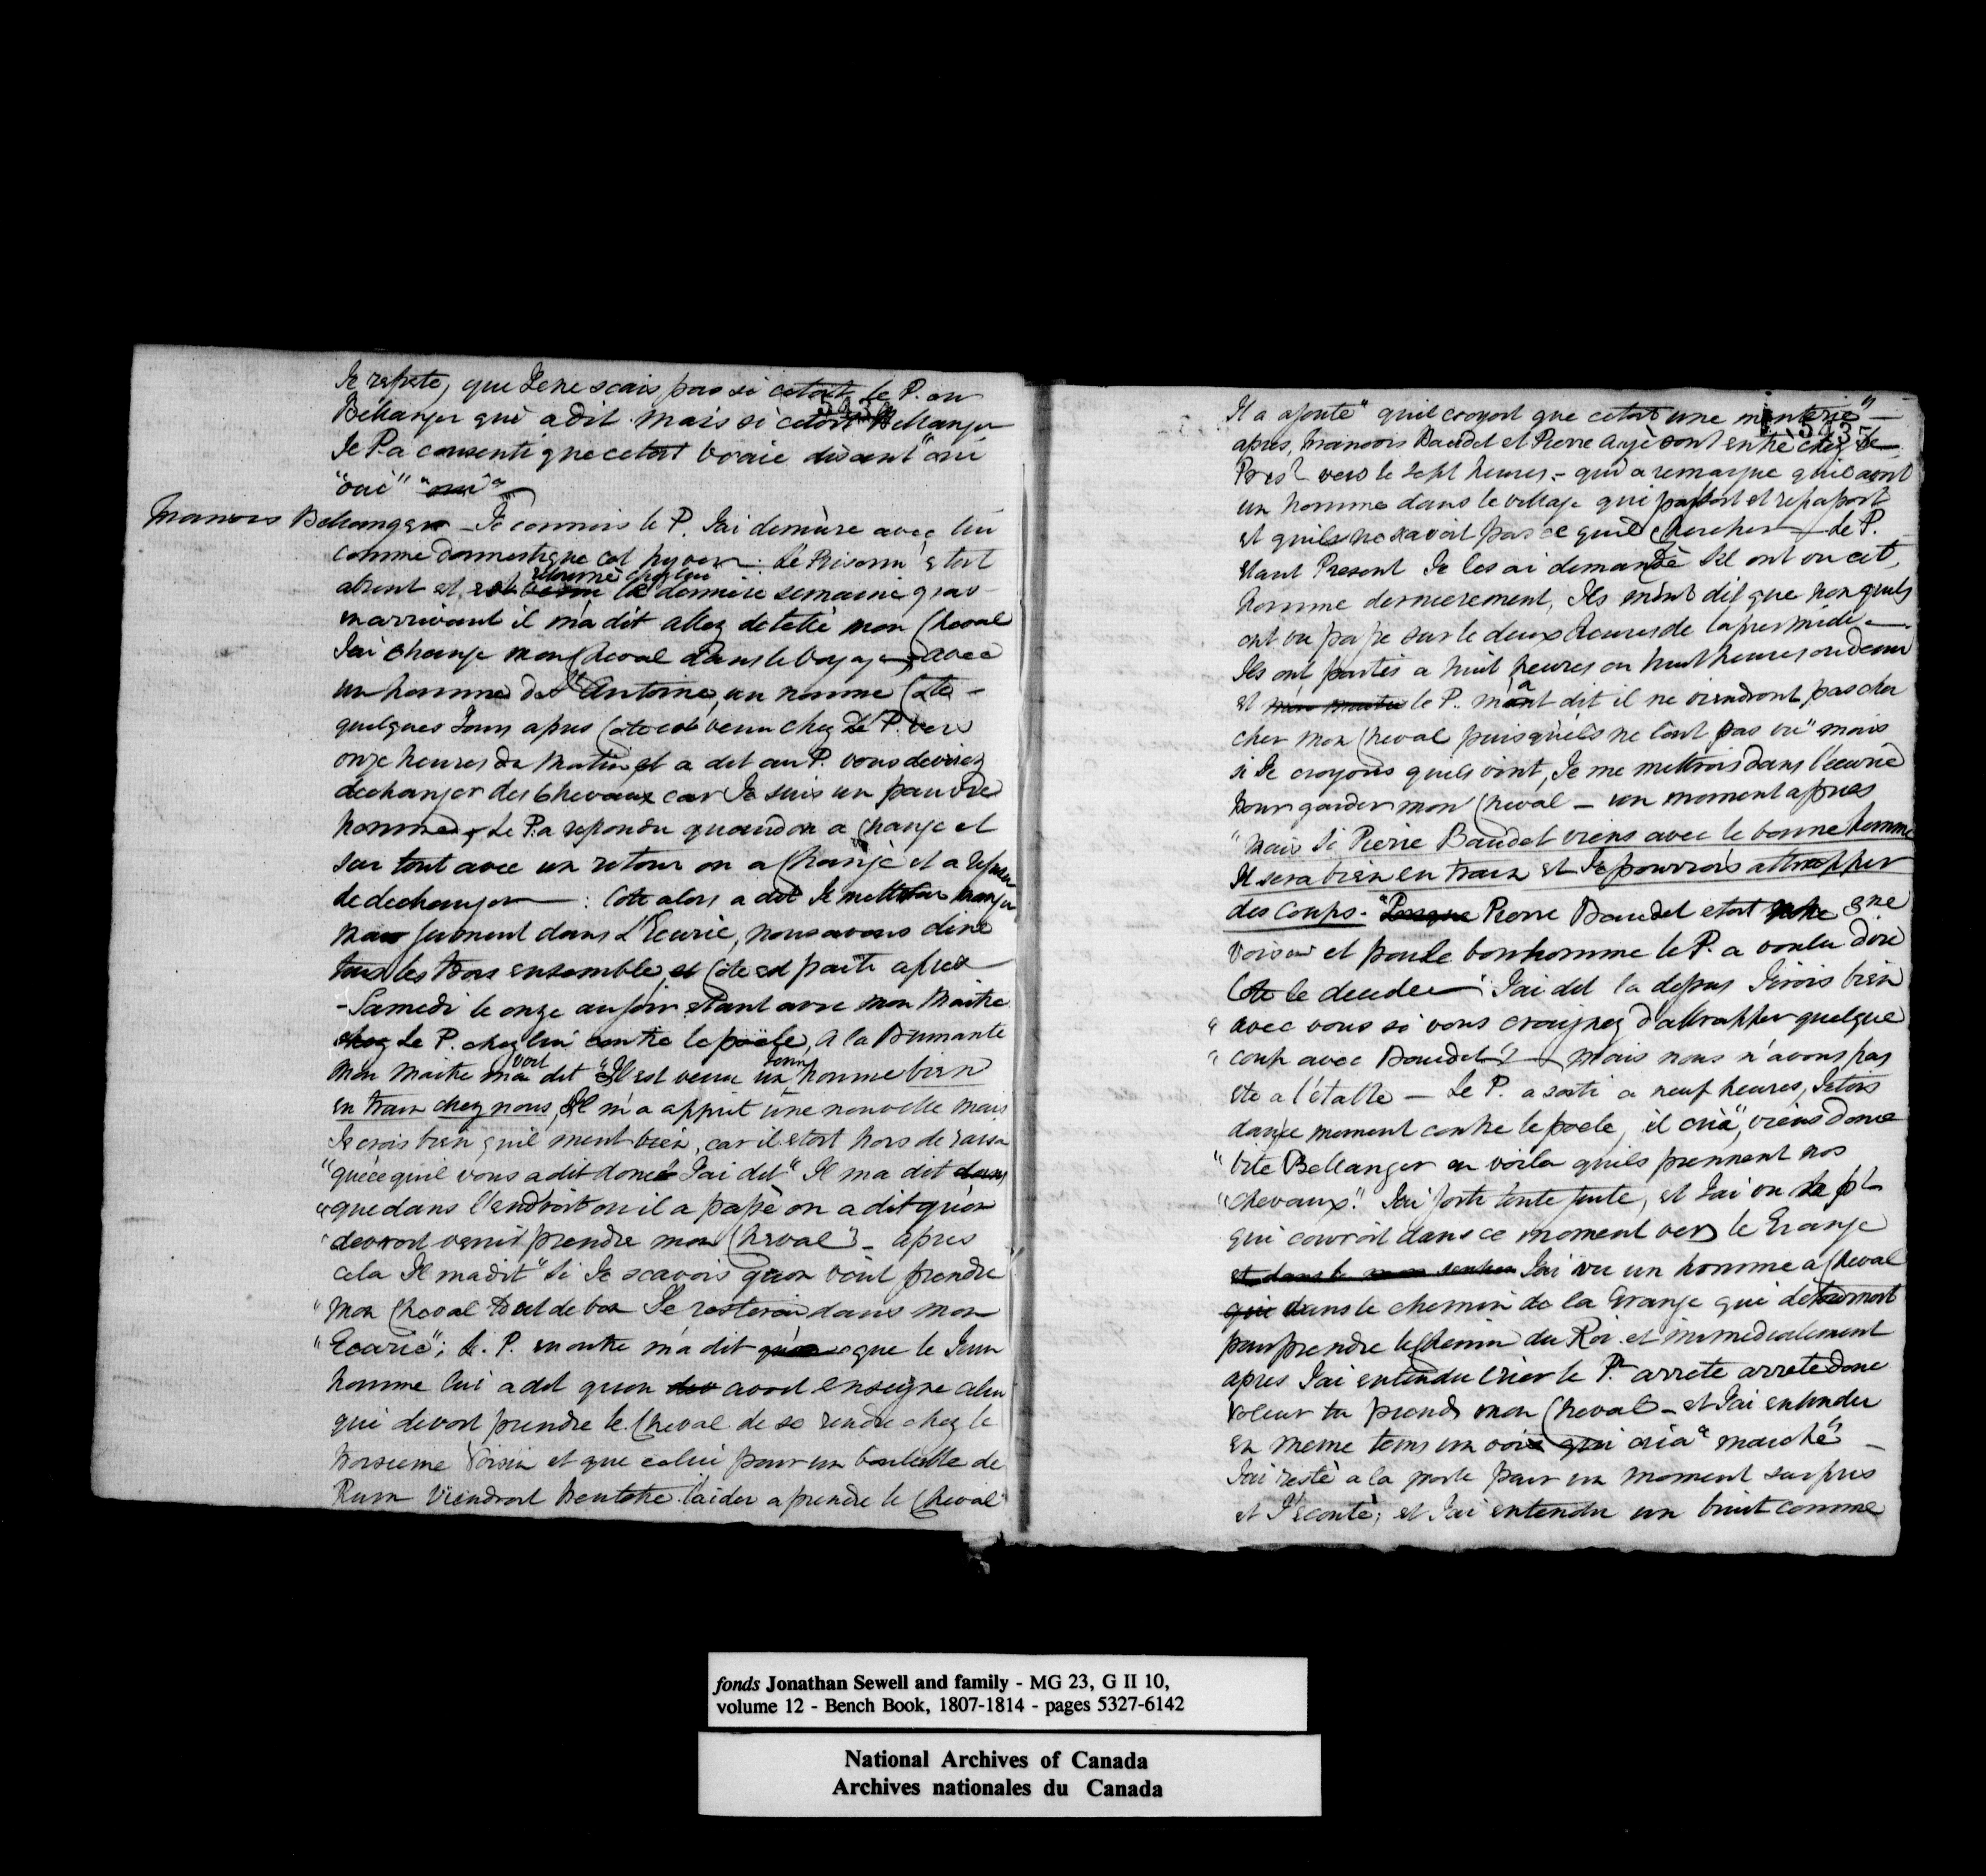 5434
Je repete, que Je ne scais pas si cetoit le P. ou
Bellanger qui a dit mais si cetoit Bellanger
Le P. a consenti que cetoit vraie disant "oui
"oui" "oui"
Francois Bellanger - Je connois le P. J'ai demeure avec lui
comme domestique cet hyver : Le Prisonr etoit
absent et est retourné chez lui la derniere semaine gras
en arrivant il m'a dit allez detellé mon Cheval
J'ai change mon Cheval dans le voyage, avec
un homme de St Antoine, un nomme Cote -
quelques Jours apres Cote est venu chez Le P. vers
onze heures du Matin et a dit au P. vous deviez
dechanger des Chevaux car Je suis un pauvre
homme, Le P. a repondu quand on a change et
sur tout avec un retour on a Changé et a refuser
de dechanger : Cote alors a dit Je mettrai manger
ma Jument dans L'Ecurie, nous avons dine
tous les trois ensemble et Cote est parti apres
- Samedi le onze au soir etant avec mon Maitre
chez Le P. chez lui contre le poële, a la Brunante
mon Maitre m'a dit "Il est venu un jeune homme bien
en train chez nous, Il m'a apprit une nouvelle mais
Je crois bien qu'il ment bien, car il etoit hors de raison
"quece quil vous a dit donc" J'ai dit "Il ma dit
"que dans l'endroit ou il a passé on a dit qu'on
"devroit venir prendre mon Cheval" - apres
cela Il m'a dit "Si Je scavois qu'on vint prendre
"mon Cheval tout de bon Je resterois dans mon
"Ecurie"; le P. en outre m'a dit que le Jeune
homme lui a dit quon avoit enseigne celui
qui devoit prendre le Cheval de se rendre chez le
troisieme Voisin et que celui pour un bouteille de
Rum Viendroit peutetre l'aider a prendre le Cheval
5435
Il a ajouté "quil croyoit que cetoit une menterie" -
apres, Francois Baudet et Pierre Augé sont entré chez le
Prisr vers le sept heures - qui a remarque quil avoit
un homme dans le village qui passoit et repassoit
et quils ne savoit pas ce quil Chercher - Le P.
etant Present Je les ai demandé sil ont vu cet
homme dernierement, Ils m'ont dit que non quils
ont vu passe sur le deux heures de l'apres midi -
Ils ont partis a huit heures ou huit heures ou demi
et le P. m'a dit il ne viendront pas cher
cher mon Cheval puisqu'ils ne l'ont pas vu" mais
si Je croyois quils vint, Je me mettrois dans l'ecurie
pour garder mon Cheval - un moment apres
"mais si Pierre Baudet viens avec le bonne homme
Il sera bien en train et Je pourrois attrapper
des coups. Pierre Baudet etoit
voisin et par le bonhomme le P. a voulu dire
Cote J'ai dit la dessus J'irois bien
"avec vous si vous croyez d'attrapper quelque
"coup avec Baudet" - mais nous n'avons pas
ete a l'etable - Le P. a sorti a neuf heures, Jetois
dans ce moment contre le poele, il cria, "viens donc
"vite Bellanger en voila quils prennent nos
"chevaux." J'ai sorti toute suite, et J'ai vu le pr
qui couroit dans ce moment vers le Grange
J'ai vu un homme a Cheval
dans le chemin de la Grange qui detournoit
pour prendre le Chemin du Roi et immediatement
apres J'ai entendu Crier le Pr arrete arrete donc
voleur tu prends mon Cheval - et J'ai entendu
en meme tems un voix qui cria "marche" -
J'ai resté a la porte pour un moment surpris
et J'ecouté; et J'ai entendu un bruit comme
fonds Jonathan Sewell and family - MG 23, G II 10,
volume 12 - Bench Book, 1807-1814 - pages 5327-6142
National Archives of Canada
Archives nationales du Canada